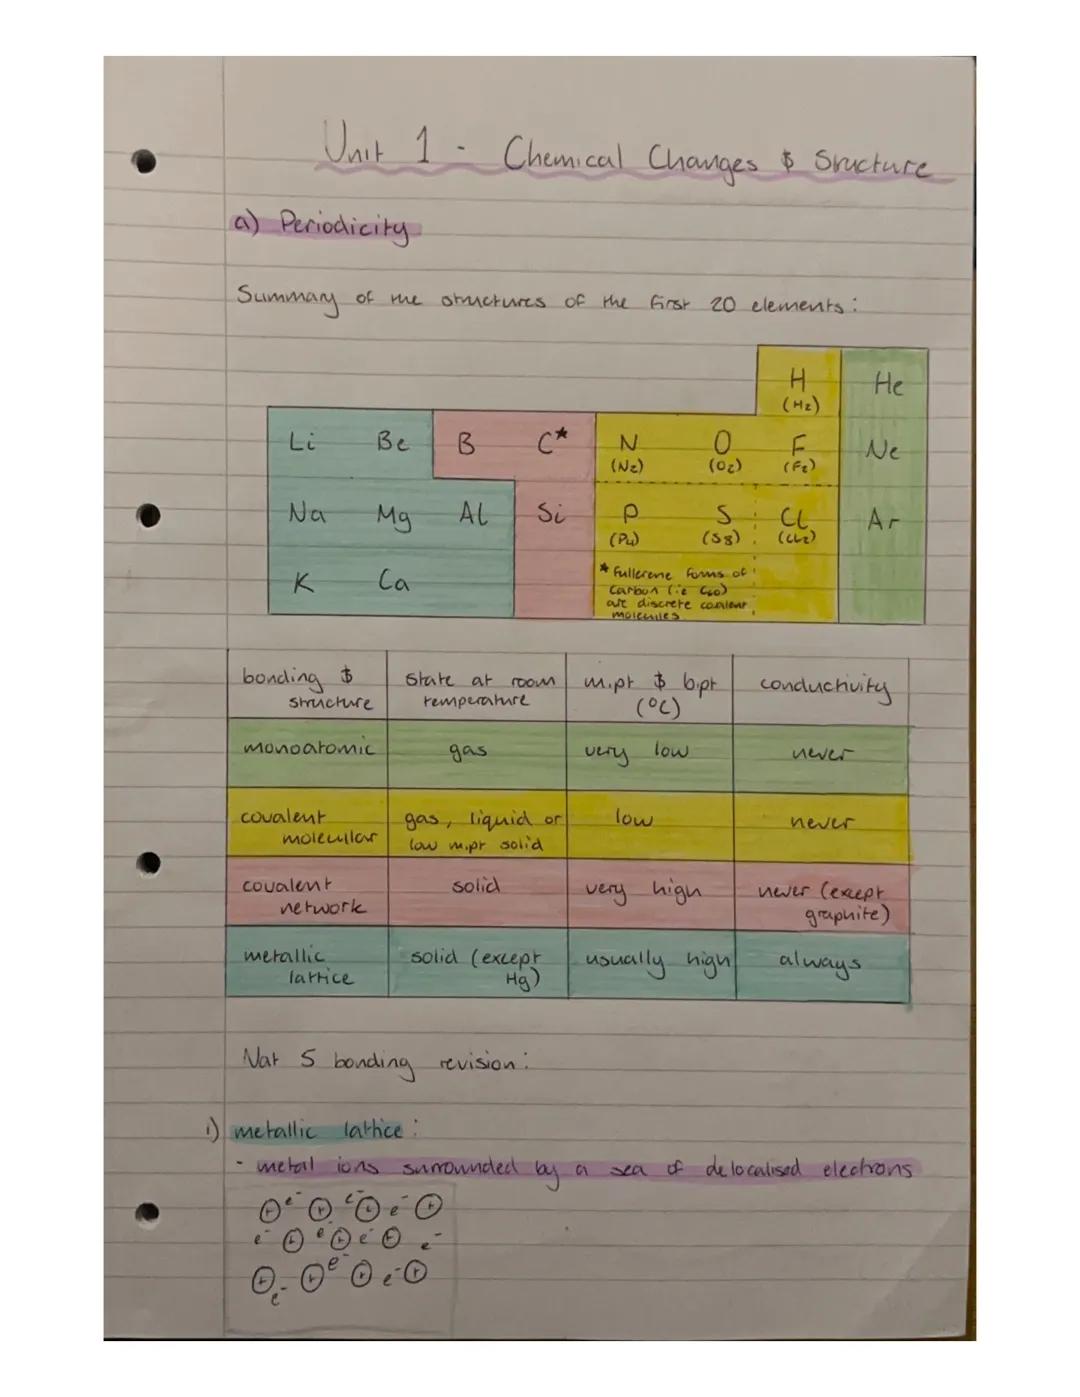 Unit 1 - Chemical Changes & Structure
a) Periodicity
Summary of the structures of the first 20 elements:
H He
(H2)
Li Be B C* N O F Ne
(N2) (O2) (F2)
Na Mg Al Si P S Cl Ar
(P4) (S8) (Cl2)
K Ca
* Fullerene forms of
carbon (i.e C60)
are discrete covalent
molecules.
bonding & structure
state at room temperature
m.pt & b.pt (°C)
conductivity
monoatomic gas very low never
covalent molecular
gas, liquid or low m.pt solid
low
never
covalent network
solid
very high
never (except graphite)
metallic lattice
solid (except Hg)
usually high
always
Nat 5 bonding revision:
i) metallic lattice:
- metal ions surrounded by a sea of delocalised electrons
+ e- + e- + e- +
e- + e- + e- + e-
+ e- + e- + e- +